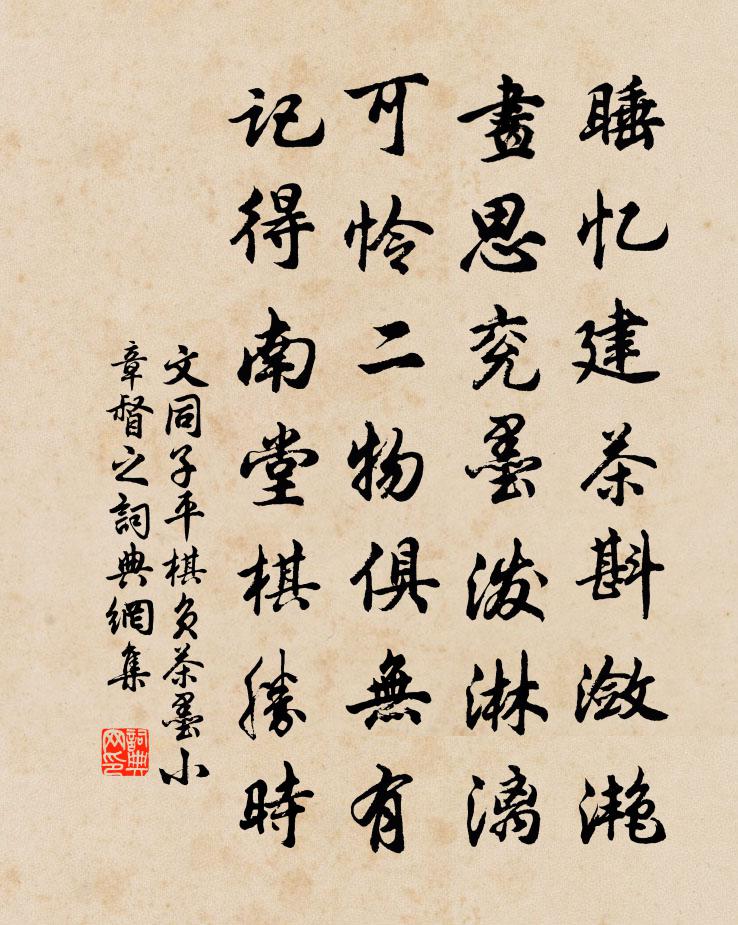 睡忆建茶斟潋滟
畫思兖墨泼淋漓
可怜二物俱無有
記得南堂棋勝時
文同子平棋负茶墨小
章督之詞典網集
詞典网印